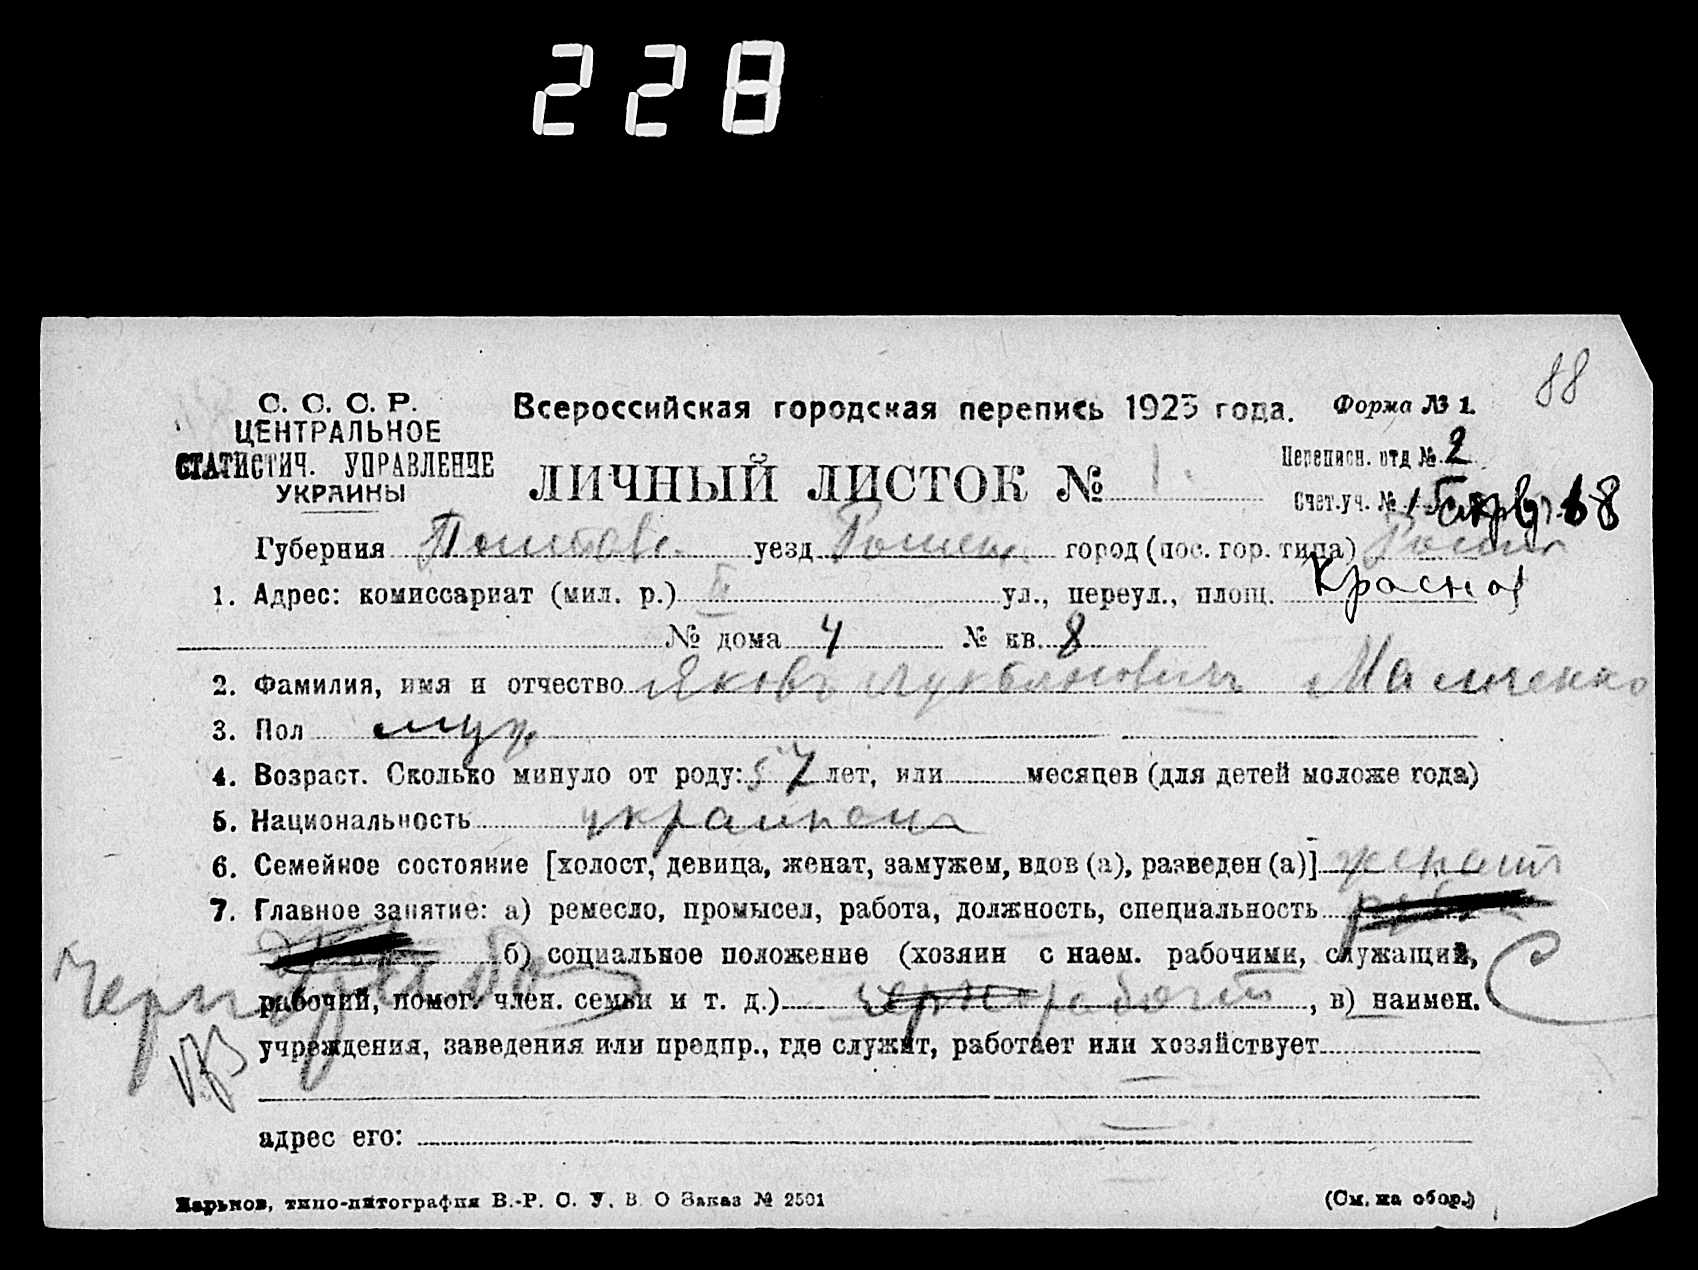 228
88
С. С. С. Р.
ЦЕНТРАЛЬНОЕ
СТАТИСТИЧ. УПРАВЛЕНИЕ
УКРАИНЫ
Всероссийская городская перепись 1923 года.
Форма № 1.
ЛИЧНЫЙ ЛИСТОК № 1.
Переписн. отд № 2
Счет.уч. № 15 18
Губерния Полтавс. уезд Роменс. город (пос. гор. типа) Ромны
1. Адрес: комиссариат (мил. р.) ул., переул., площ. Красная
№ дома 4 № кв. 8
2. Фамилия, имя и отчество Яковъ Лукьяновичъ Малченко
3. Пол муж
4. Возраст. Сколько минуло от роду: 57 лет, или месяцев (для детей моложе года)
5. Национальность украинец
6. Семейное состояние [холост, девица, женат, замужем, вдов (а), разведен (а)] женат
7. Главное занятие: а) ремесло, промысел, работа, должность, специальность
б) социальное положение (хозяин с наем. рабочими, служащий,
Чернораб
рабочий, помог. член. семьи и т. д.) чернорабочий, в) наимен.
учреждения, заведения или предпр., где служит, работает или хозяйствует
адрес его:
Харьков, типо-литография В.-Р. С. У. В. О Заказ № 2501
(См. на обор.)